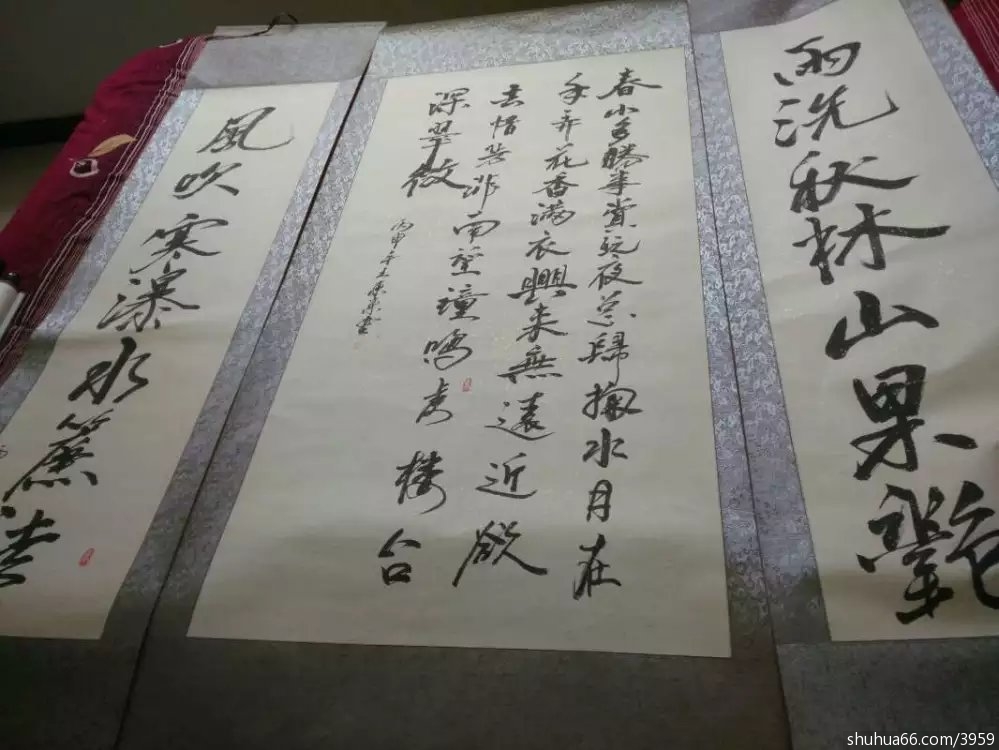 雨洗秋林山果艷
春山多勝事賞玩夜忘歸掬水月在
手弄花香滿衣興来無遠近欲
去惜芳菲南望鐘鳴處樓台
深翠微
丙申年
風吹寒瀑水簾
shuhua66.com/3959